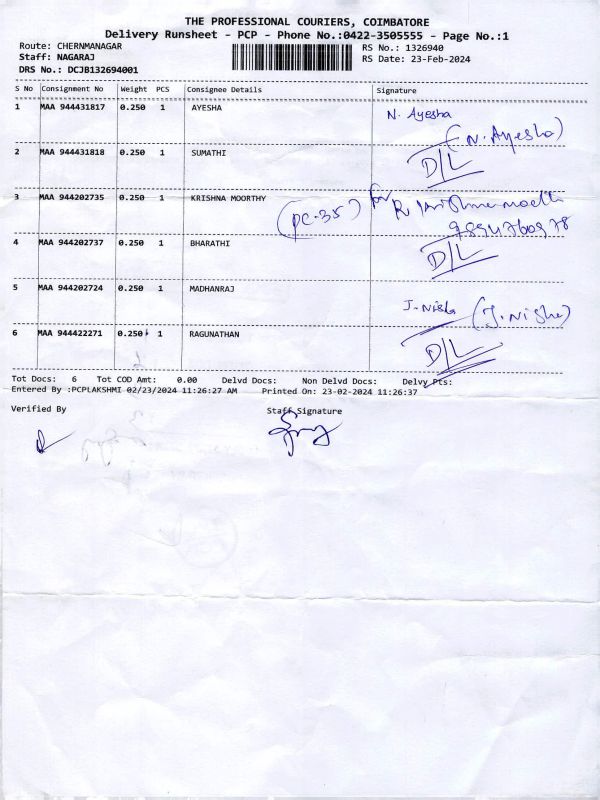 THE PROFESSIONAL COURIERS, COIMBATORE
Delivery Runsheet - PCP - Phone No.:0422-3505555 - Page No.:1
Route: CHERNMANAGAR RS No.: 1326940
Staff: NAGARAJ RS Date: 23-Feb-2024
DRS No.: DCJB132694001
S No Consignment No Weight PCS Consignee Details Signature
1 MAA 944431817 0.250 1 AYESHA N. Ayesha
(N. Ayesha)
2 MAA 944431818 0.250 1 SUMATHI D/L
3 MAA 944202735 0.250 1 KRISHNA MOORTHY
(PC-35) for R
4 MAA 944202737 0.250 1 BHARATHI D/L
5 MAA 944202724 0.250 1 MADHANRAJ J. Nisha (J. Nisha)
6 MAA 944422271 0.250 1 RAGUNATHAN D/L
Tot Docs: 6 Tot COD Amt: 0.00 Delvd Docs: Non Delvd Docs: Delvy Pts:
Entered By :PCPLAKSHMI 02/23/2024 11:26:27 AM Printed On: 23-02-2024 11:26:37
Verified By Staff Signature